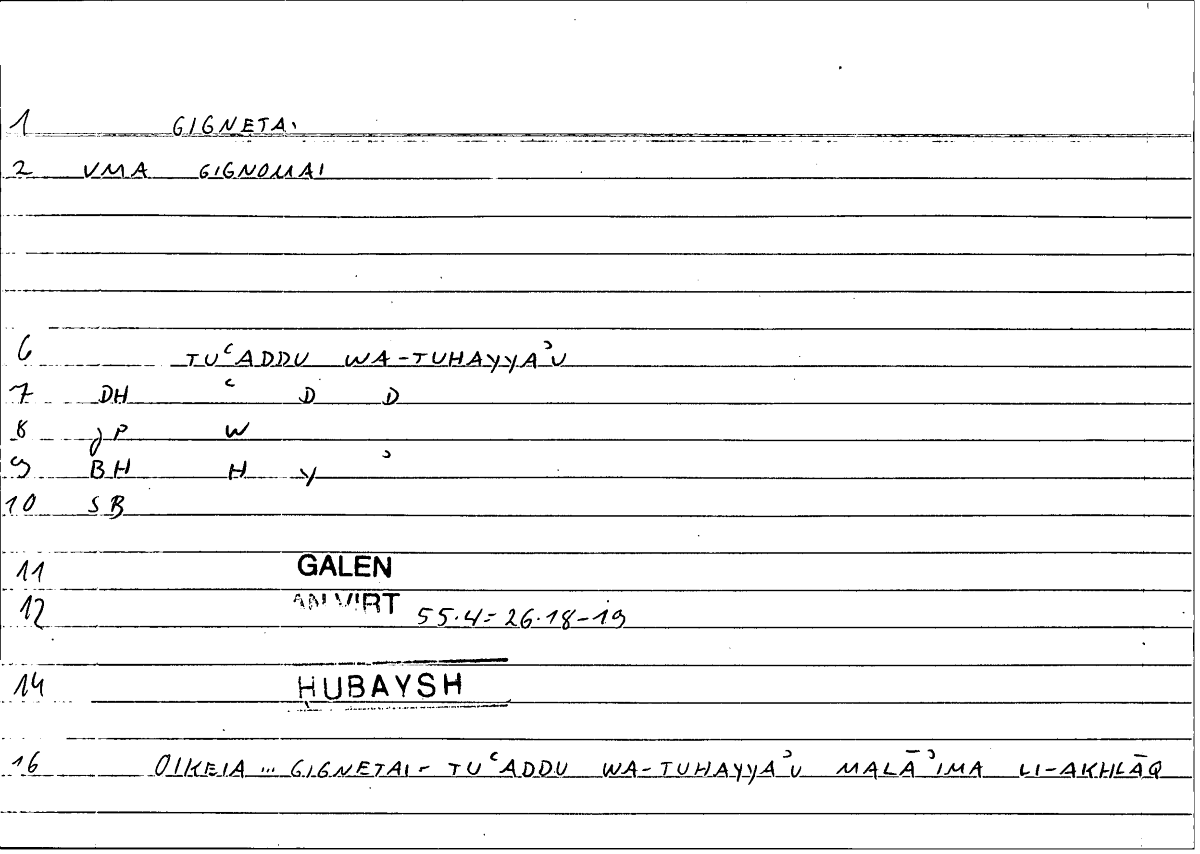 1 GIGNETAI
2 VMA GIGNOMAI
6 TUʿADDU WA-TUHAYYAʾU
7 DH ʿ D D
8 JP W
9 BH H Y ʾ
10 SB
11 GALEN
12 AN VIRT 55.4=26.18-19
14 ḤUBAYSH
16 OIKEIA ... GIGNETAI - TUʿADDU WA-TUHAYYAʾU MALĀʾIMA LI-AKHLĀQ